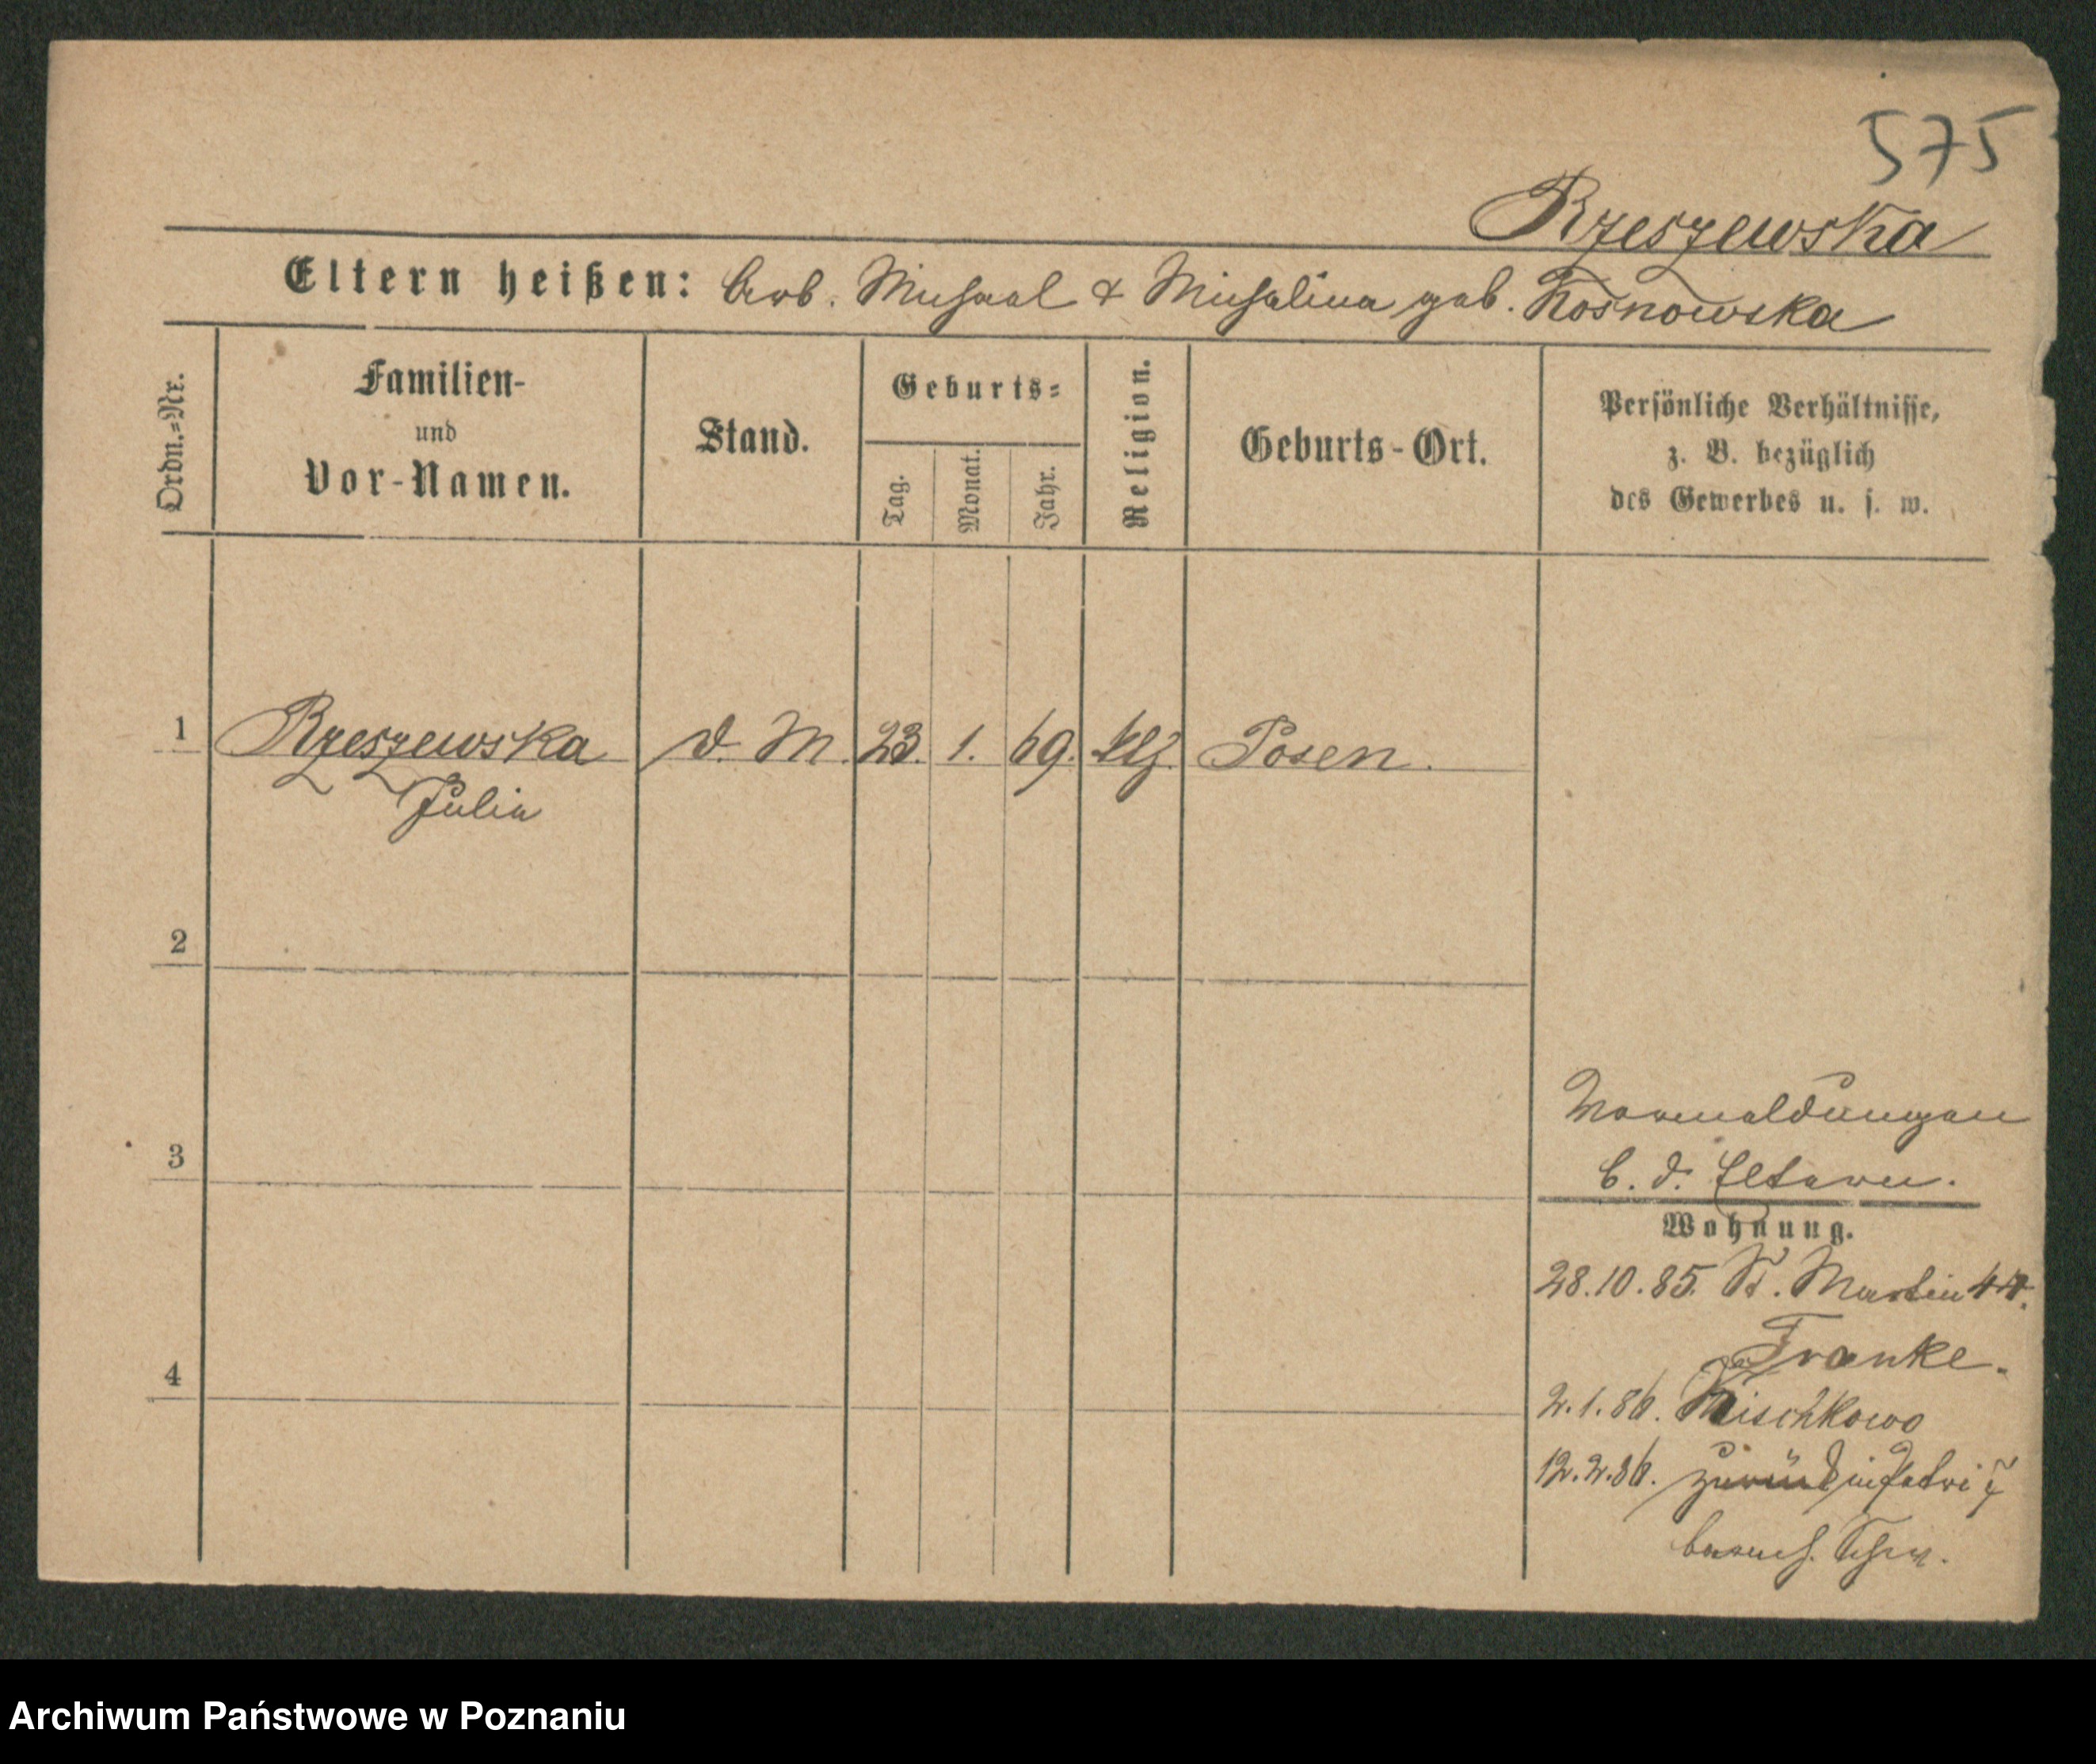 575
Rzeszewska
Eltern heißen: Arb. Michael & Michalina geb. Kosnowska
Ordn.=Nr.
Familien-
und
Vor-Namen.
Stand.
Geburts=
Tag.
Monat.
Jahr.
Religion.
Geburts-Ort.
Persönliche Verhältnisse,
z. B. bezüglich
des Gewerbes u. s. w.
1 Rzeszewska d. M. 23. 1. 69. kth. Posen.
Julia
2
3
4
Vormeldungen
b. d. Eltern.
Wohnung.
28.10.85. St. Martin
Franke.
2.1.86. Mischkowo
12.2.86. zurück
besuch.
Archiwum Państwowe w Poznaniu